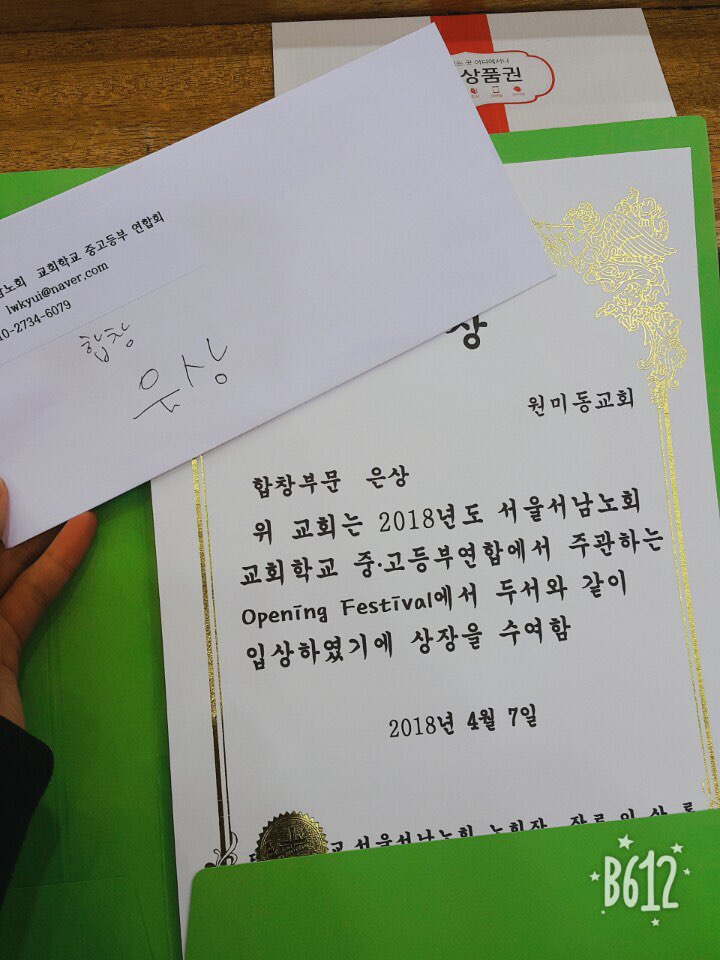 는 곳 어디에서나
상품권
노회 교회학교 중고등부 연합회
lwkyui@naver.com
0-2734-6079
합창
은상
상
원미동교회
합창부문 은상
위 교회는 2018년도 서울서남노회
교회학교 중·고등부연합에서 주관하는
Opening Festival에서 두서와 같이
입상하였기에 상장을 수여함
2018년 4월 7일
교 서울서남노회 노회장 장로
B612